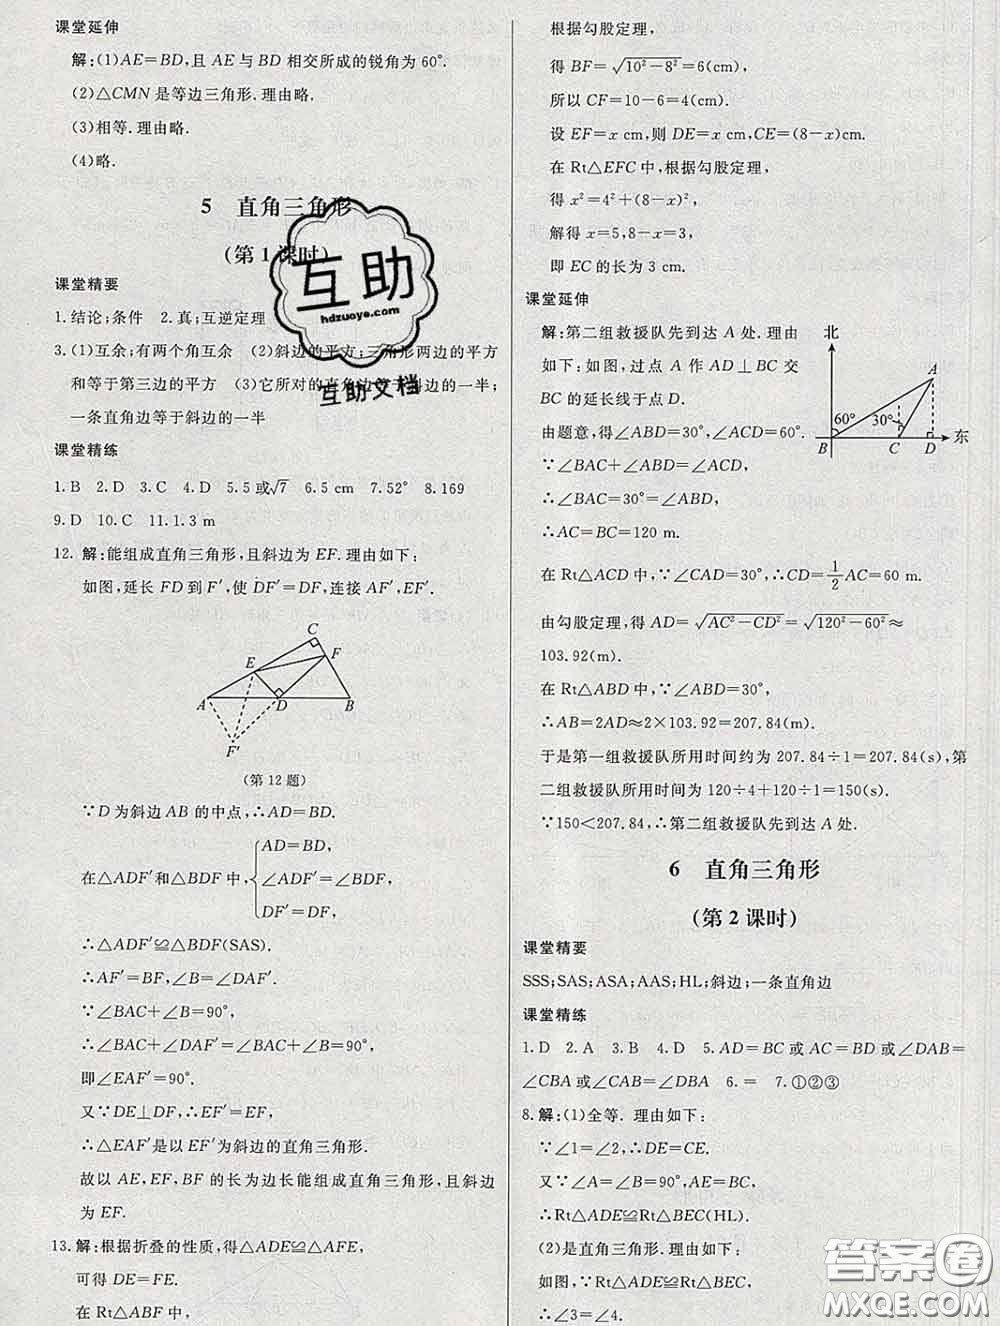 课堂延伸
解:(1)AE=BD,且 AE 与 BD 相交所成的锐角为 60°.
(2)△CMN 是等边三角形.理由略.
(3)相等.理由略.
(4)略.
5 直角三角形
(第 1 课时)
课堂精要
1.结论;条件 2.真;互逆定理
3.(1)互余;有两个角互余 (2)斜边的平方;三角形两边的平方
和等于第三边的平方 (3)它所对的直角边等于斜边的一半;
一条直角边等于斜边的一半
课堂精练
1.B 2.D 3.C 4.D 5.5 或√7 6.5 cm 7.52° 8.169
9.D 10.C 11.1.3 m
12.解:能组成直角三角形,且斜边为 EF.理由如下:
如图,延长 FD 到 F′,使 DF′=DF,连接 AF′,EF′.
C
E
F
A
D
B
F′
(第 12 题)
∵D 为斜边 AB 的中点,∴AD=BD.
AD=BD,
在△ADF′和△BDF 中, ∠ADF′=∠BDF,
DF′=DF,
∴△ADF′≌△BDF(SAS).
∴AF′=BF,∠B=∠DAF′.
∵∠BAC+∠B=90°,
∴∠BAC+∠DAF′=∠BAC+∠B=90°,
即∠EAF′=90°.
又∵DE⊥DF,∴EF′=EF.
∴△EAF′是以 EF′为斜边的直角三角形.
故以 AE,EF,BF 的长为边长能组成直角三角形,且斜边
为 EF.
13.解:根据折叠的性质,得△ADE≌△AFE,
可得 DE=FE.
在 Rt△ABF 中,
根据勾股定理,
得 BF=√(10²−8²)=6(cm).
所以 CF=10−6=4(cm).
设 EF=x cm,则 DE=x cm,CE=(8−x)cm.
在 Rt△EFC 中,根据勾股定理,
得 x²=4²+(8−x)².
解得 x=5,8−x=3.
即 EC 的长为 3 cm.
课堂延伸
解:第二组救援队先到达 A 处.理由
如下:如图,过点 A 作 AD⊥BC 交
BC 的延长线于点 D.
由题意,得∠ABD=30°,∠ACD=60°.
∵∠BAC+∠ABD=∠ACD,
∴∠BAC=30°=∠ABD,
∴AC=BC=120 m.
北
A
60°
30°
B
C
D
东
在 Rt△ACD 中,∵∠CAD=30°,∴CD=1/2AC=60 m.
由勾股定理,得 AD=√(AC²−CD²)=√(120²−60²)≈
103.92(m).
在 Rt△ABD 中,∵∠ABD=30°,
∴AB=2AD≈2×103.92=207.84(m).
于是第一组救援队所用时间约为 207.84÷1=207.84(s),第
二组救援队所用时间为 120÷4+120÷1=150(s).
∵150<207.84,∴第二组救援队先到达 A 处.
6 直角三角形
(第 2 课时)
课堂精要
SSS;SAS;ASA;AAS;HL;斜边;一条直角边
课堂精练
1.D 2.A 3.B 4.D 5.AD=BC 或 AC=BD 或∠DAB=
∠CBA 或∠CAB=∠DBA 6.= 7.①②③
8.解:(1)全等.理由如下:
∵∠1=∠2,∴DE=CE.
又∵∠A=∠B=90°,AE=BC,
∴Rt△ADE≌Rt△BEC(HL).
(2)是直角三角形.理由如下:
如图,∵Rt△ADE≌Rt△BEC,
∴∠3=∠4.
互助
hdzuoye.com
互助文档
答案圈
MXQE.COM